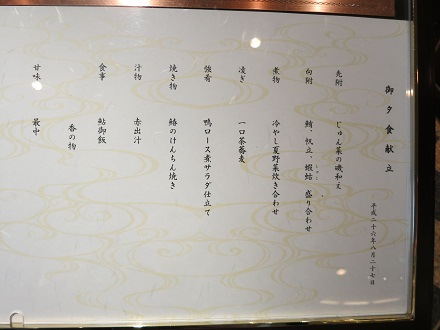 御夕食献立
平成二十六年八月二十七日
先附 じゅん菜の磯和え
向附 鯖、帆立、蝦蛄 盛り合わせ
煮物 冷やし夏野菜炊き合わせ
凌ぎ 一口茶蕎麦
強肴 鴨ロース煮サラダ仕立て
焼き物 鰆のけんちん焼き
汁物 赤出汁
食事 鮎御飯
香の物
甘味 最中